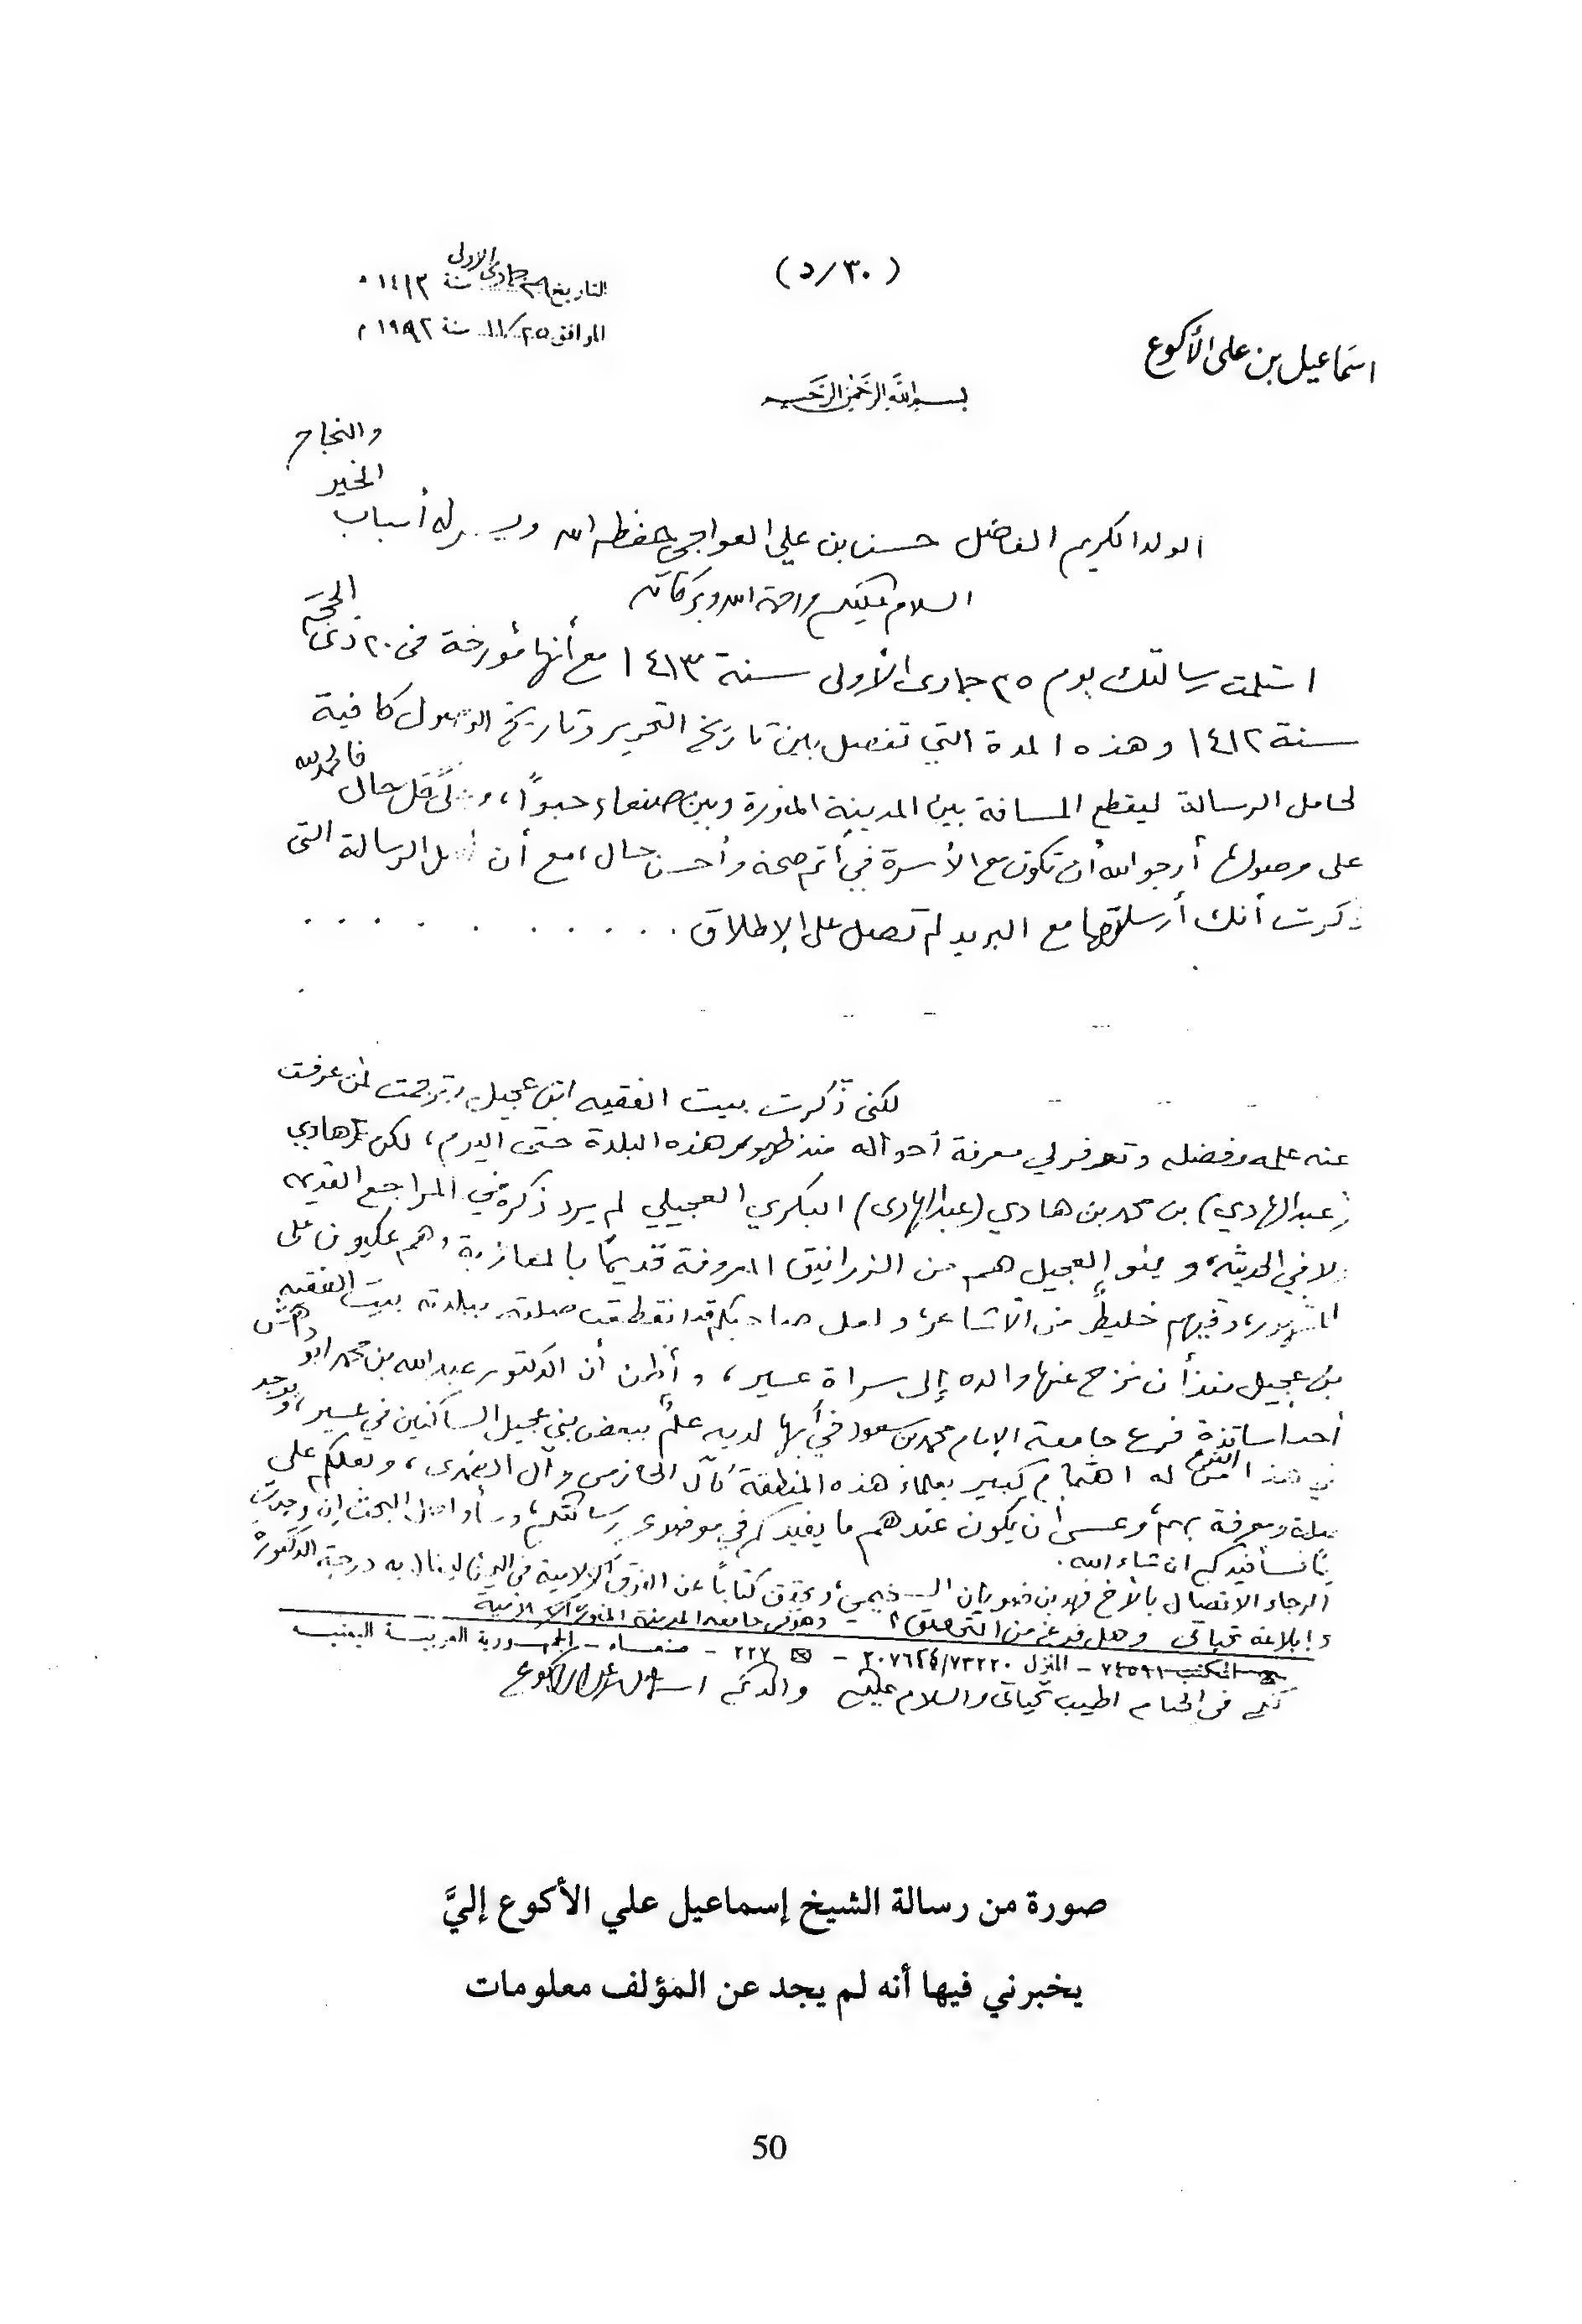 (٣٠/د)
التاريخ ٣٠ جمادى الأولى سنة ١٤١٣ هـ
الموافق ٢٥/١١ سنة ١٩٩٢ م
اسماعيل بن علي الأكوع
بسم الله الرحمن الرحيم
الولد الكريم الفاضل حسن بن علي العواجي حفظه الله ويسر له أسباب الخير والنجاح
السلام عليكم ورحمة الله وبركاته
استلمت رسالتك يوم ٢٥ جمادى الأولى سنة ١٤١٣ مع أنها مؤرخة في ٢٠ ذي الحجة
سنة ١٤١٢ وهذه المدة التي تفصل بين تاريخ التحرير وتاريخ الوصول كافية
لحامل الرسالة ليقطع المسافة بين المدينة المنورة وبين صنعاء حبواً، وعلى كل حال فالحمد لله
على وصولها أرجو الله أن تكون مع الأسرة في أتم صحة وأحسن حال، مع أن الرسالة التي
ذكرت أنك أرسلتها مع البريد لم تصل على الإطلاق . . . . . . . . . .
لكني ذكرت بيت الفقيه ابن عجيل وترجمت لمن عرفت
عنه علمه وفضله وتوفر لي معرفة أحواله منذ ظهور هذه البلدة حتى اليوم، لكن هادي
(عبد الهادي) بن محمد بن هادي (عبد الهادي) البكري العجيلي لم يرد ذكره في المراجع القديمة
ولا في الحديثة، وبنو العجيل هم من الزرانيق المعروفة قديماً بالمعازبة، وهم عكيون على
المشهور، وفيهم خليط من الأشاعر، ولعل صاحبكم قد انقطعت صلته ببلدته بيت الفقيه
بن عجيل منذ أن نزح عنها والده إلى سراة عسير، وأظن أن الدكتور عبد الله بن محمد أبو داهش
أحد اساتذة فرع جامعة الإمام محمد بن سعود في أبها لديه علم ببعض بني عجيل الساكنين في عسير، ويوجد
في هذا الفرع من له اهتمام كبير بعلماء هذه المنطقة كآل الحازمي وآل النعمي، ولعلكم على
صلة ومعرفة بهم، وعسى أن يكون عندهم ما يفيدكم في موضوع رسالتكم، وسأواصل البحث إن وجدت
شيئاً فسأفيدكم ان شاء الله.
الرجاء الاتصال بالأخ فهد بن ويحقق كتاباً عن الفرق الإسلامية في اليمن لينال به درجة الدكتوراه
وإبلاغه تحياتي وهل فرغ من التحقيق؟ وهو في جامعة المدينة المنورة الإسلامية
المكتب ٧٤٥٩١ - المنزل ٧٣٢٢٠/٢٠٧٦٤٤ - ٢٢٧ - صنعاء - الجمهورية العربية اليمنية
لكم في الختام اطيب تحياتي والسلام عليكم والدكم اسماعيل الأكوع
صورة من رسالة الشيخ إسماعيل علي الأكوع إليَّ
يخبرني فيها أنه لم يجد عن المؤلف معلومات
50